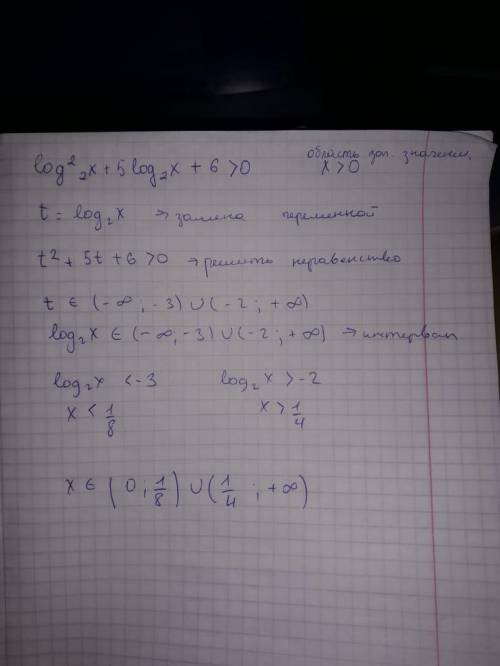 log²₂x + 5 log₂x + 6 > 0
область доп. значений,
x > 0
t = log₂x → замена переменной
t² + 5t + 6 > 0 → решить неравенство
t ∈ (-∞; -3) ∪ (-2; +∞)
log₂x ∈ (-∞; -3) ∪ (-2; +∞) → интервал
log₂x < -3 log₂x > -2
x < 1/8 x > 1/4
x ∈ (0; 1/8) ∪ (1/4; +∞)